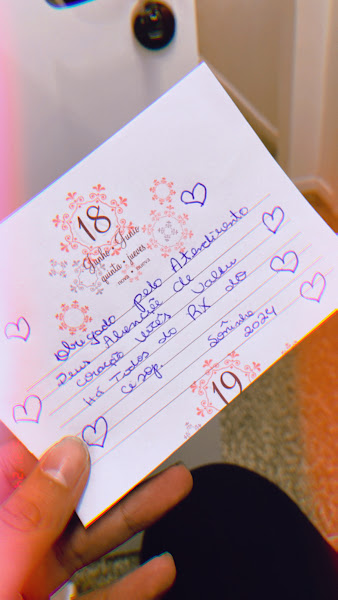 18
Junho • Junio
quinta • jueves
Obrigado Pelo Atendimento
Deus Abençõe de
coração Vocês
Há Todos do RX do
Cezop.
Soninha
2024
19